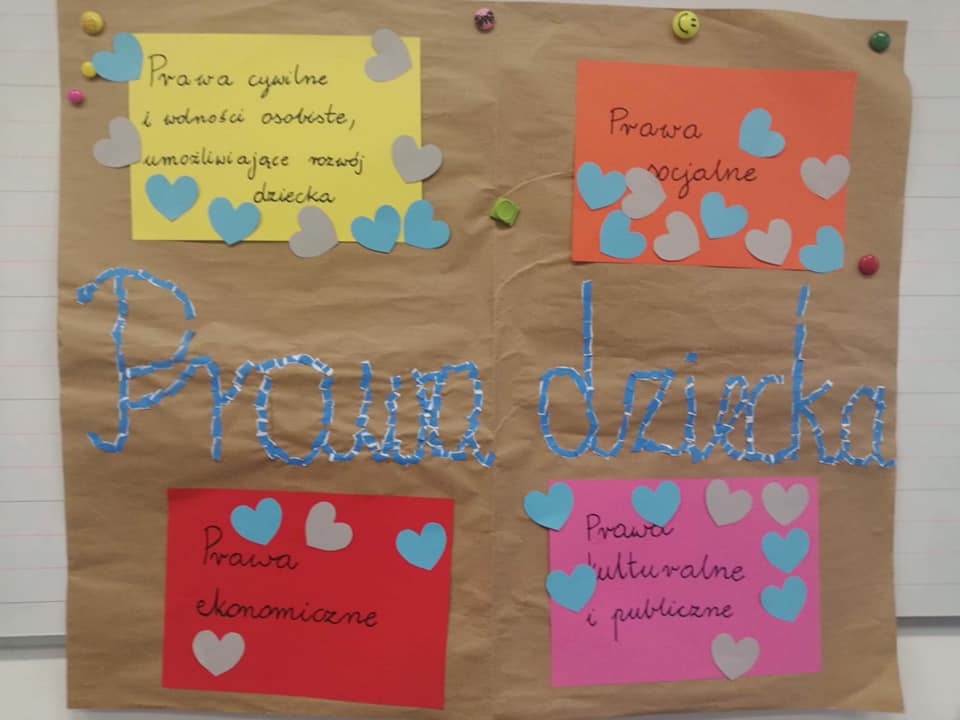 Prawa cywilne
i wolności osobiste,
umożliwiające rozwój
dziecka
Prawa
socjalne
Prawa dziecka
Prawa
ekonomiczne
Prawa
kulturalne
i publiczne